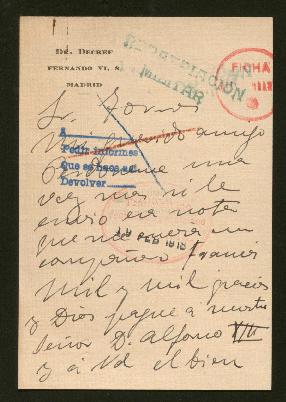 DR. DECREF
FERNANDO VI, 8.
MADRID
REPATRIACIÓN
MILITAR
FICHA
Sr. Torres
Mi querido amigo
A
Pedir informes
Que se haga
Devolver
Perdone una
vez mas si le
envio esa nota
que me
FEB 1918
compañero frances
Mil y mil gracias
y Dios pague a nuestro
Señor D. Alfonso XIII
y á Vd el bien